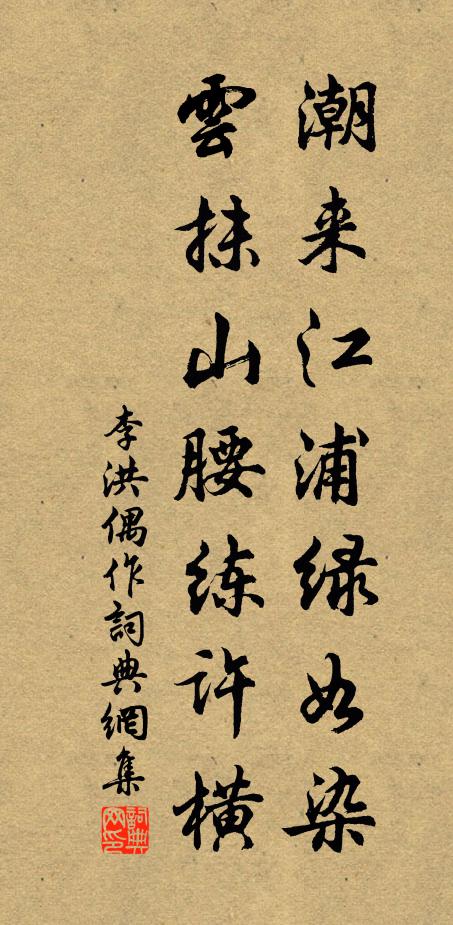 潮来江浦绿如染
雲抹山腰练许横
李洪偶作詞典網集
詞典
网印